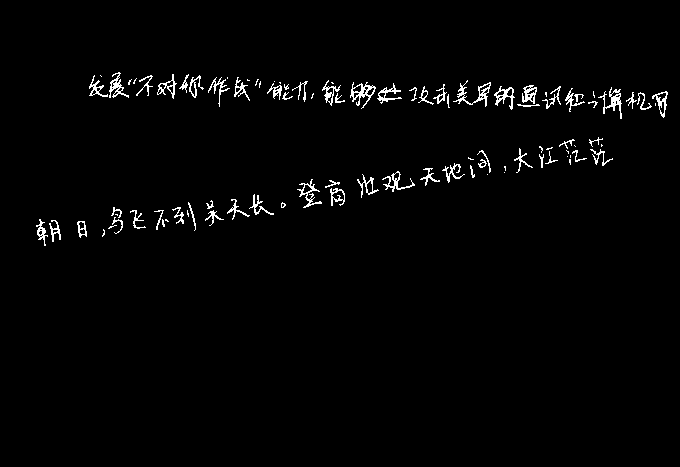 发展“不对称作战”能力,能够处攻击美军的通讯和计算机网
朝日,鸟飞不到吴天长。登高壮观天地间,大江茫茫